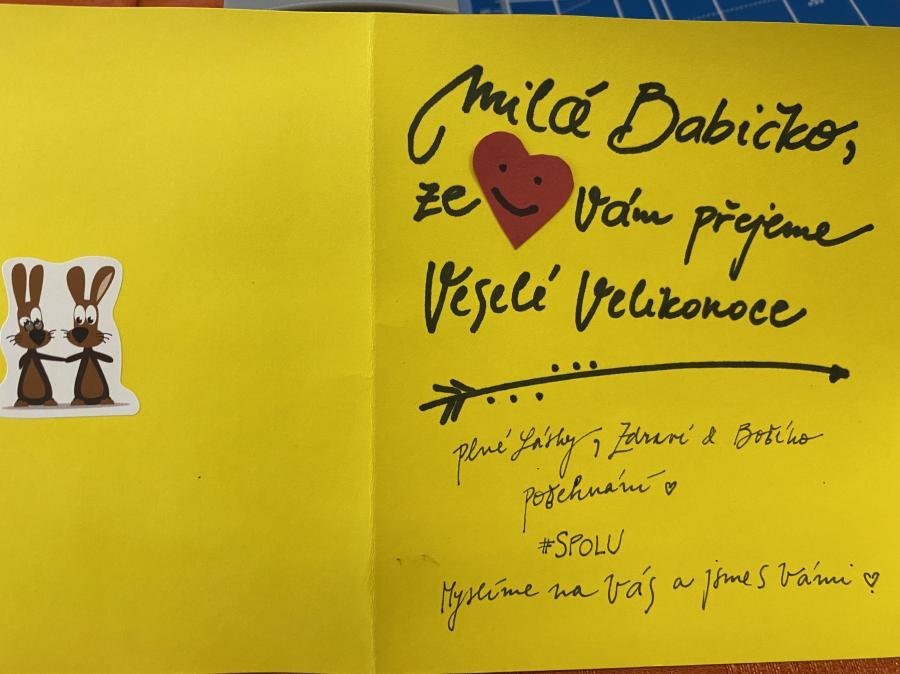 Milá Babičko,
ze Vám přejeme
Veselé Velikonoce
plné Lásky, Zdraví & Božího
požehnání ♡
#SPOLU
Myslíme na Vás a jsme s Vámi ♡